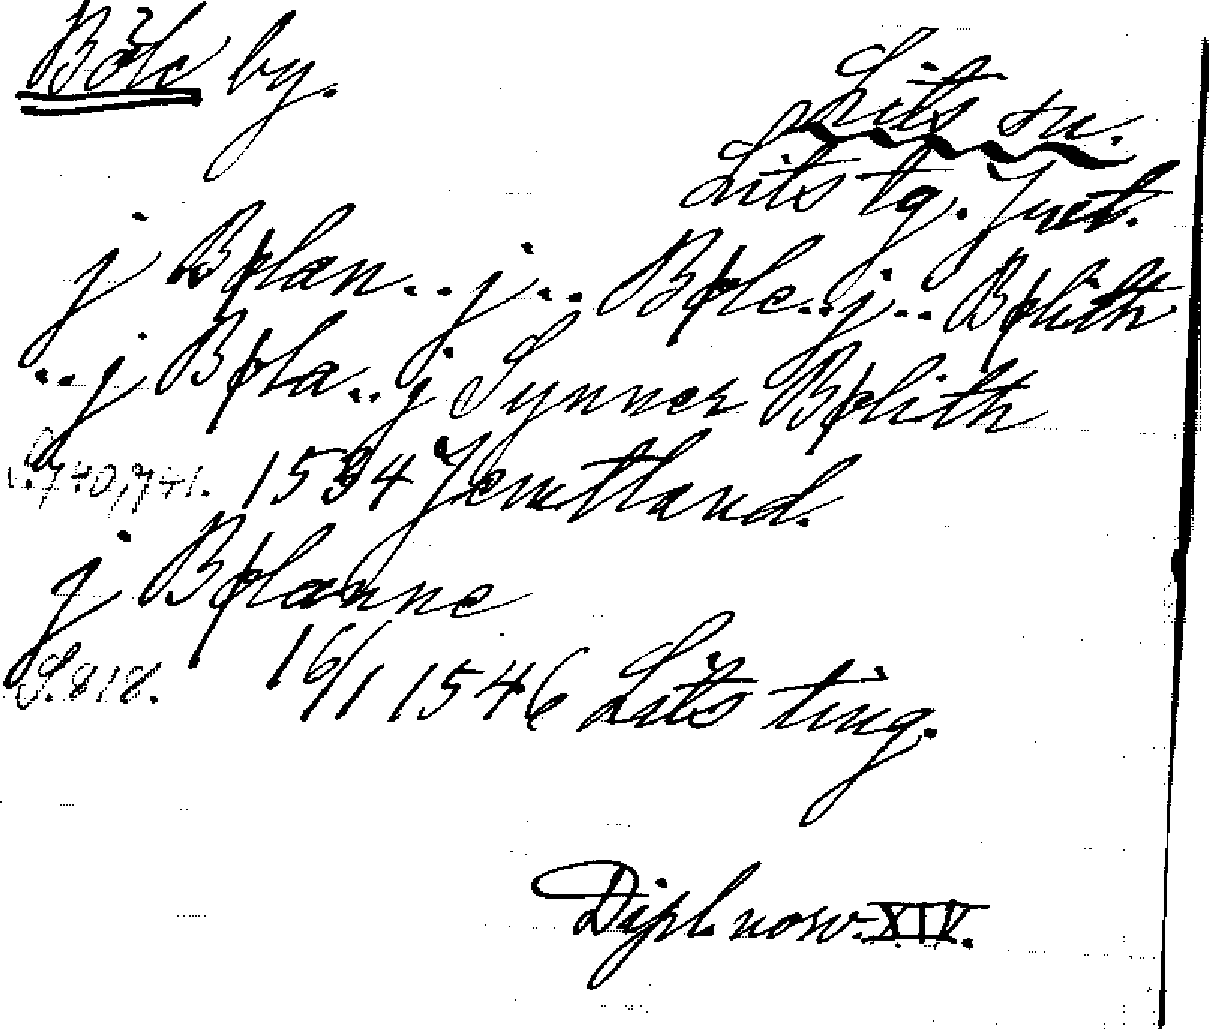 Böle by.
Lits sn.
Lits tg. Jmt.
j Bølan..j... Bøle..j.. Bølith
..j Bøla..j Synner Bølith
S.740,741. 1534 Jemtland.
j Bølanne
S.818. 16/1 1546 Lits ting.
Dipl. norv. XIV.